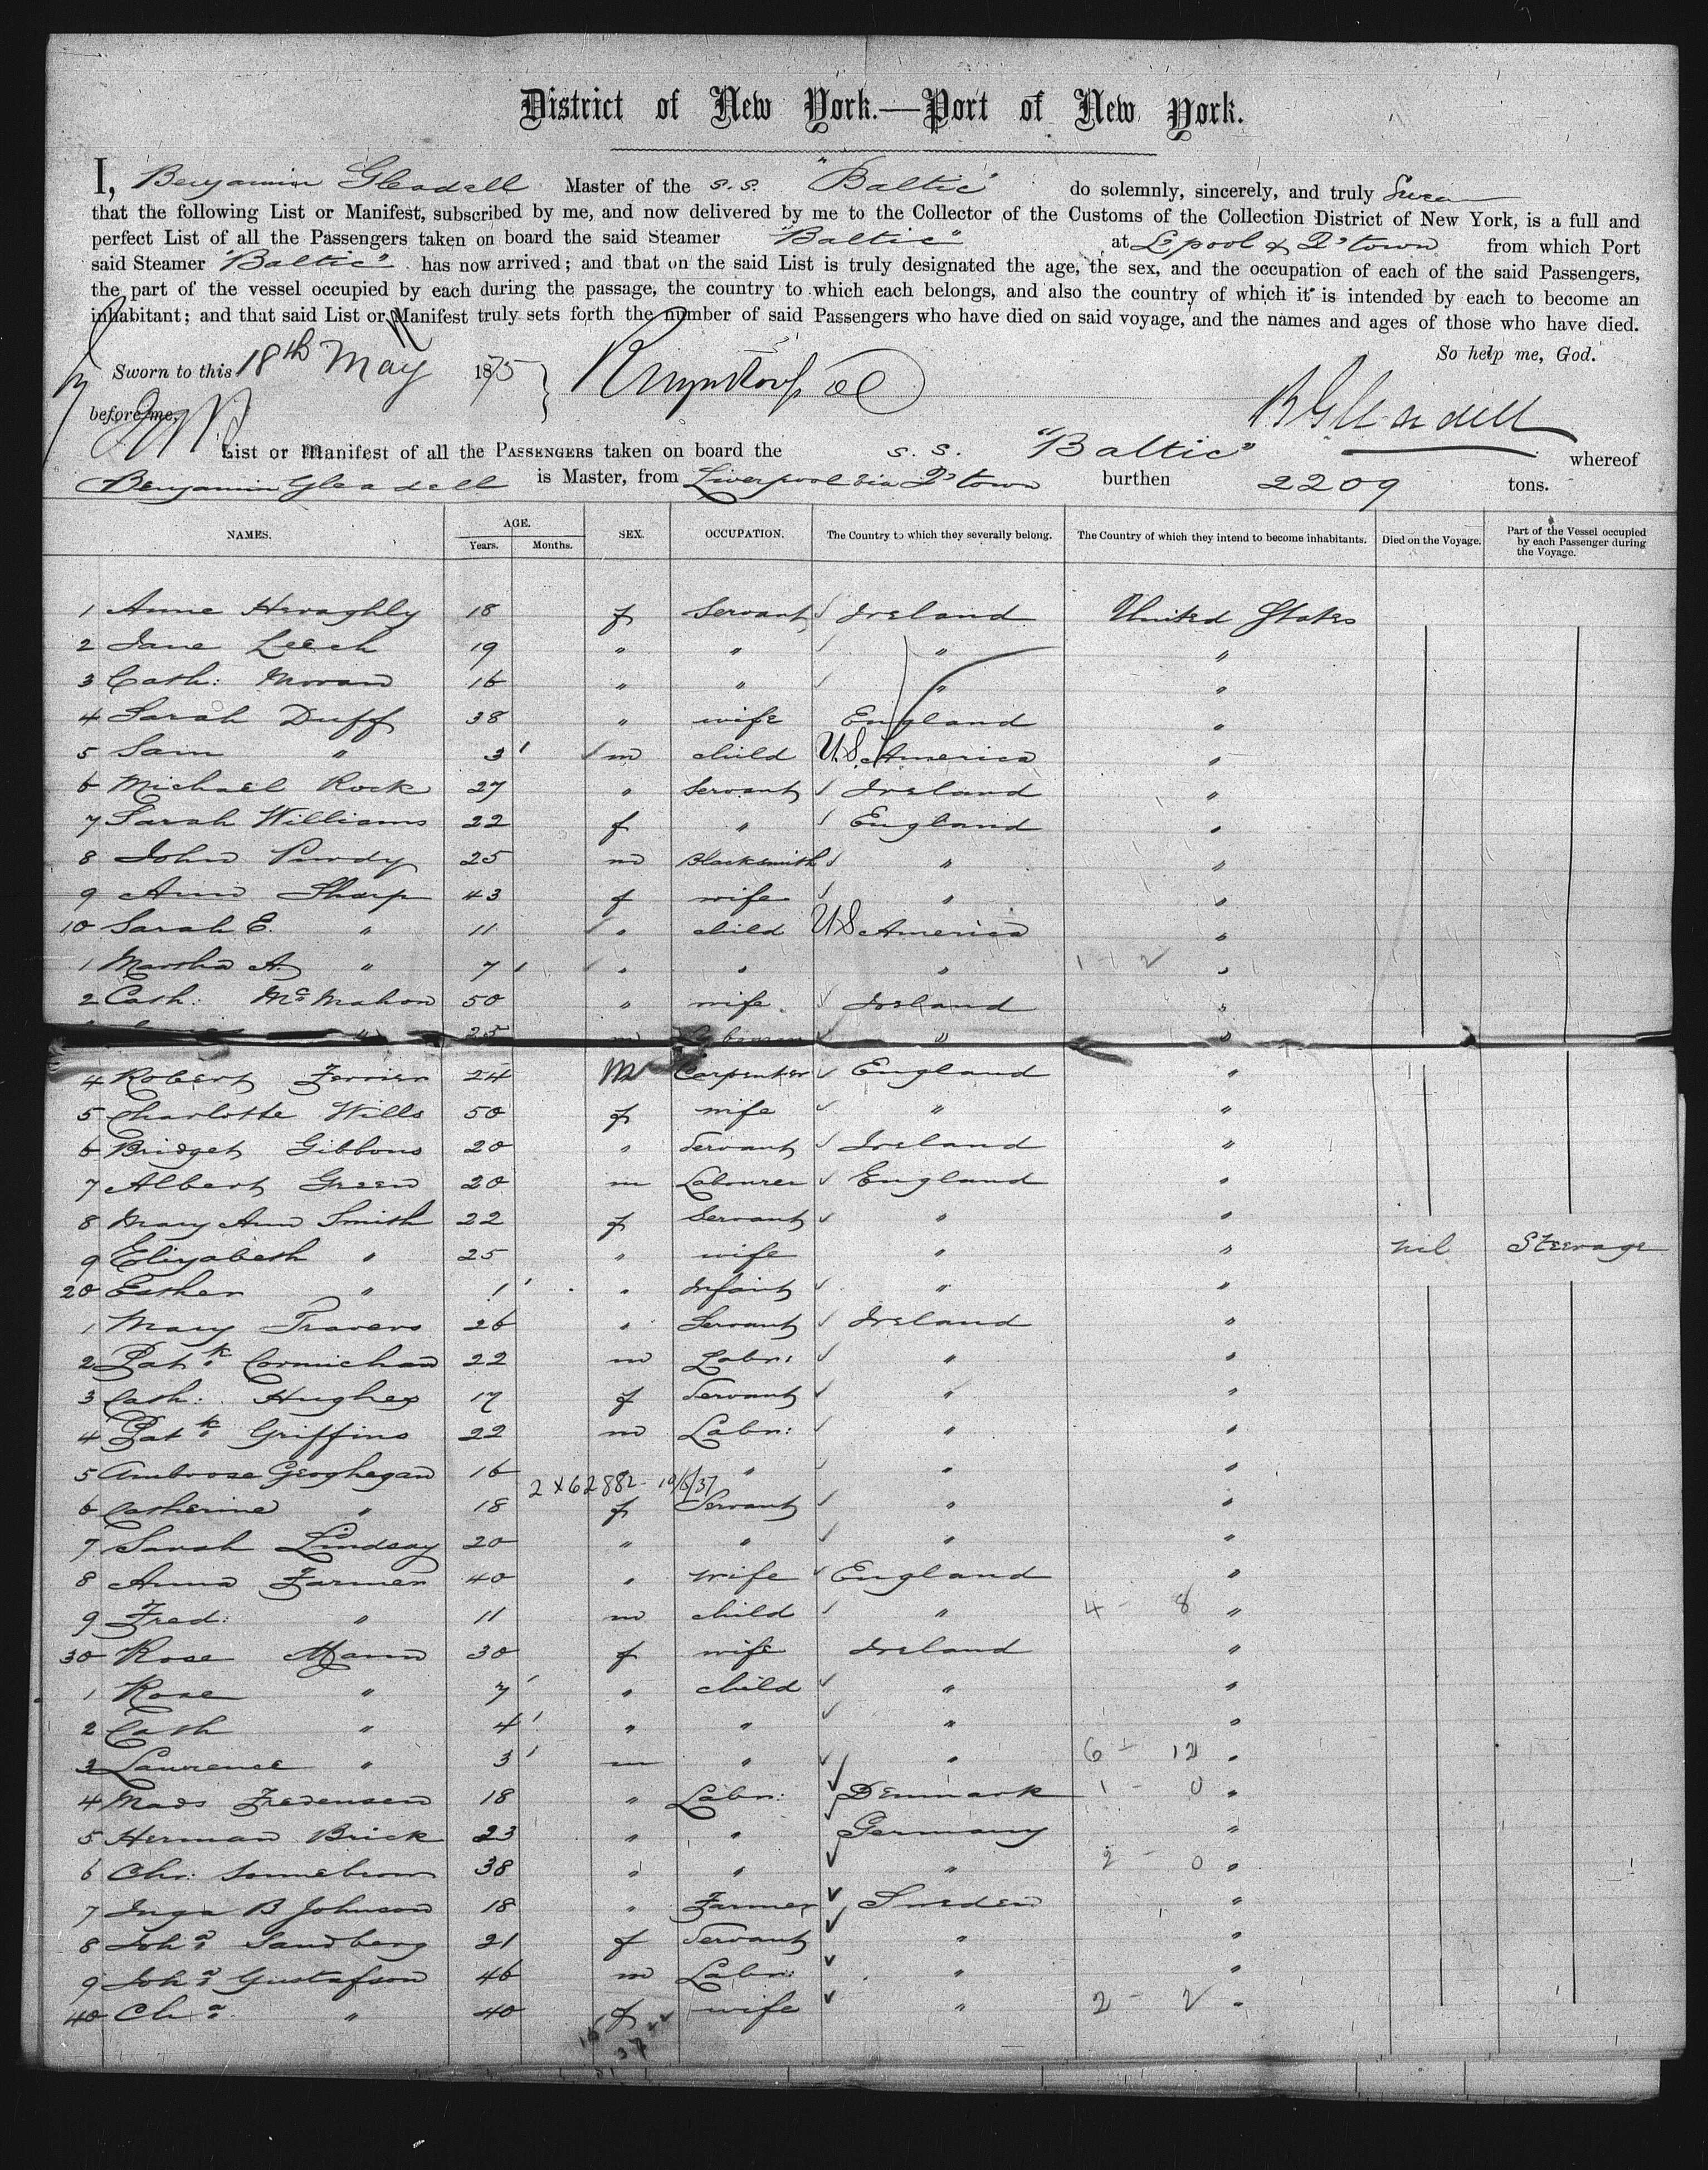 District of New York.—Port of New York.
I, Benjamin Gleadell Master of the s.s. "Baltic" do solemnly, sincerely, and truly Swear
that the following List or Manifest, subscribed by me, and now delivered by me to the Collector of the Customs of the Collection District of New York, is a full and
perfect List of all the Passengers taken on board the said Steamer "Baltic" at L'pool & Q'town from which Port
said Steamer "Baltic" has now arrived; and that on the said List is truly designated the age, the sex, and the occupation of each of the said Passengers,
the part of the vessel occupied by each during the passage, the country to which each belongs, and also the country of which it is intended by each to become an
inhabitant; and that said List or Manifest truly sets forth the number of said Passengers who have died on said voyage, and the names and ages of those who have died.
So help me, God.
Sworn to this 18th May 1875
before me,
B Gleadell
List or Manifest of all the PASSENGERS taken on board the s.s. "Baltic" whereof
Benjamin Gleadell is Master, from Liverpool via Q'town burthen 2209 tons.
NAMES. AGE. Years. Months. SEX. OCCUPATION. The Country to which they severally belong. The Country of which they intend to become inhabitants. Died on the Voyage. Part of the Vessel occupied by each Passenger during the Voyage.
1 Anne Heraghly 18 f Servant Ireland United States
2 Jane Leech 19 " " " "
3 Cath: Moran 16 " " " "
4 Sarah Duff 38 " wife England "
5 Sam " 3 m child U.S. America "
6 Michael Rock 27 " Servant Ireland "
7 Sarah Williams 22 f " England "
8 John Purdy 25 m Blacksmith " "
9 Ann Sharp 43 f wife " "
10 Sarah E. " 11 " child US America "
1 Martha A. " 7 " " " 1 - 2 "
2 Cath: McMahon 50 " wife Ireland "
" 25 m Labourer " "
4 Robert Ferrier 24 M Carpenter England "
5 Charlotte Wills 50 f wife " "
6 Bridget Gibbons 20 " Servant Ireland "
7 Albert Green 20 m Labourer England "
8 Mary Ann Smith 22 f Servant " "
9 Elizabeth " 25 " wife " " nil Steerage
20 Esther " 1 " Infant " "
1 Mary Travers 26 " Servant Ireland "
2 Patk Cormichan 22 m Labr: " "
3 Cath: Hughes 17 f Servant " "
4 Patk Griffins 22 m Labr: " "
5 Ambrose Geoghegan 16 " " " "
2 x 62882 - 10/8/37
6 Catherine " 18 f Servant " "
7 Sarah Lindsay 20 " " " "
8 Anna Farmer 40 " wife England "
9 Fred: " 11 m child " 4 - 8 "
30 Rose Mann 30 f wife Ireland "
1 Rose " 7 " child " "
2 Cath " 4 " " " "
3 Laurence " 3 m " " 6 - 12 "
4 Mads Fredensen 18 " Labr: Denmark 1 - 0 "
5 Herman Brick 23 " " Germany "
6 Chr: Sonnebrom 38 " " " 2 - 0 "
7 Inga B Johnson 18 " Farmer Sweden "
8 Joha Sandberg 21 f Servant " "
9 Joha Gustafson 46 m Labr: " "
40 Cha " 40 f wife " 2 - 2 "